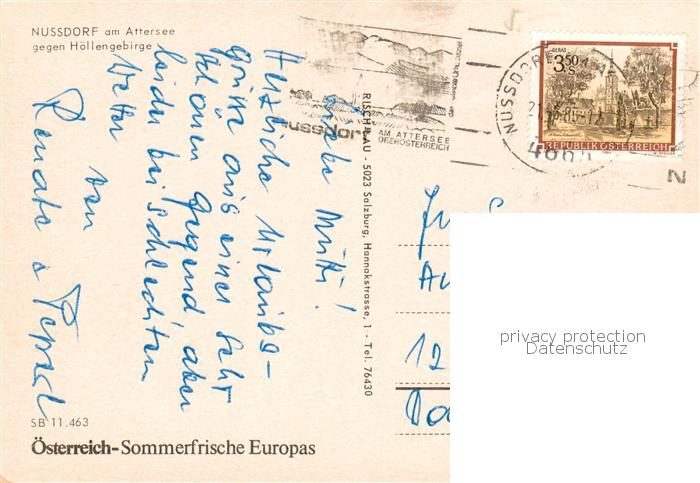 NUSSDORF am Attersee
gegen Höllengebirge
Liebe Mutti!
Herzliche Urlaubs-
grüße aus einer sehr
schönen Gegend, aber
leider bei schlechtem
Wetter
von
Renate &
SB 11.463
Österreich-Sommerfrische Europas
RISCH-LAU - 5023 Salzburg, Hannakstrasse, 1 - Tel. 76430
nussdorf
AM ATTERSEE
OBERÖSTERREICH
NUSSDORF
GERAS
3.50
S
REPUBLIK ÖSTERREICH
12
privacy protection
Datenschutz